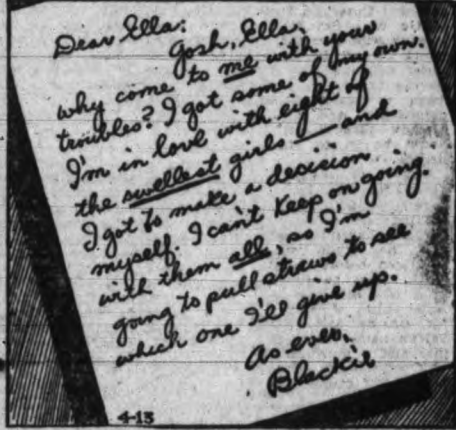 Dear Ella:
Gosh, Ella,
why come to me with your
troubles? I got some of my own.
I'm in love with eight of
the swellest girls — and
I got to make a decision
myself. I can't keep on going
with them all, so I'm
going to pull straws to see
which one I'll give up.
As ever,
Blackie
4-13